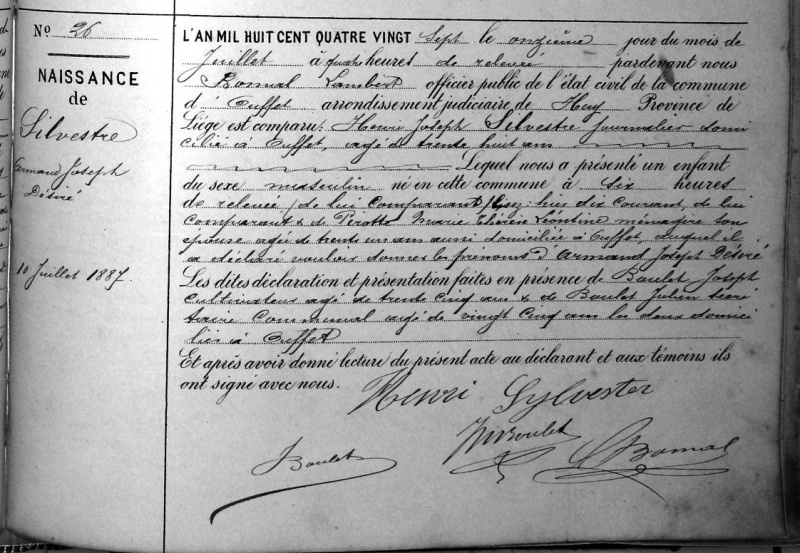 N° 26
NAISSANCE
de
Silvestre
Armand Joseph
Désiré
10 Juillet 1887.
L'AN MIL HUIT CENT QUATRE VINGT Sept le onzième jour du mois de
Juillet à quatre heures de relevée pardevant nous
Bonmal Lambert officier public de l'état civil de la commune
d' Ouffet arrondissement judiciaire de Huy Province de
Liége est comparu: Henri Joseph Silvestre journalier domi
cilié à Ouffet, agé de trente huit ans
Lequel nous a présenté un enfant
du sexe masculin né en cette commune à six heures
de relevée (de lui comparant) hier dix courant, de lui
Comparant & de Pirotte Marie Thérèse Léontine ménagère son
épouse agée de trente un ans aussi domiciliée à Ouffet, auquel il
a déclaré vouloir donner les prénoms d' Armand Joseph Désiré
Les dites déclaration et présentation faites en présence de Boulet Joseph
Cultivateur agé de trente cinq ans & de Boulet Julien secré
taire Communal agé de vingt cinq ans les deux domici
liés à Ouffet
Et après avoir donné lecture du présent acte au déclarant et aux témoins ils
ont signé avec nous.
Henri Sylvester
J Boulet
Boulet
Bonmal